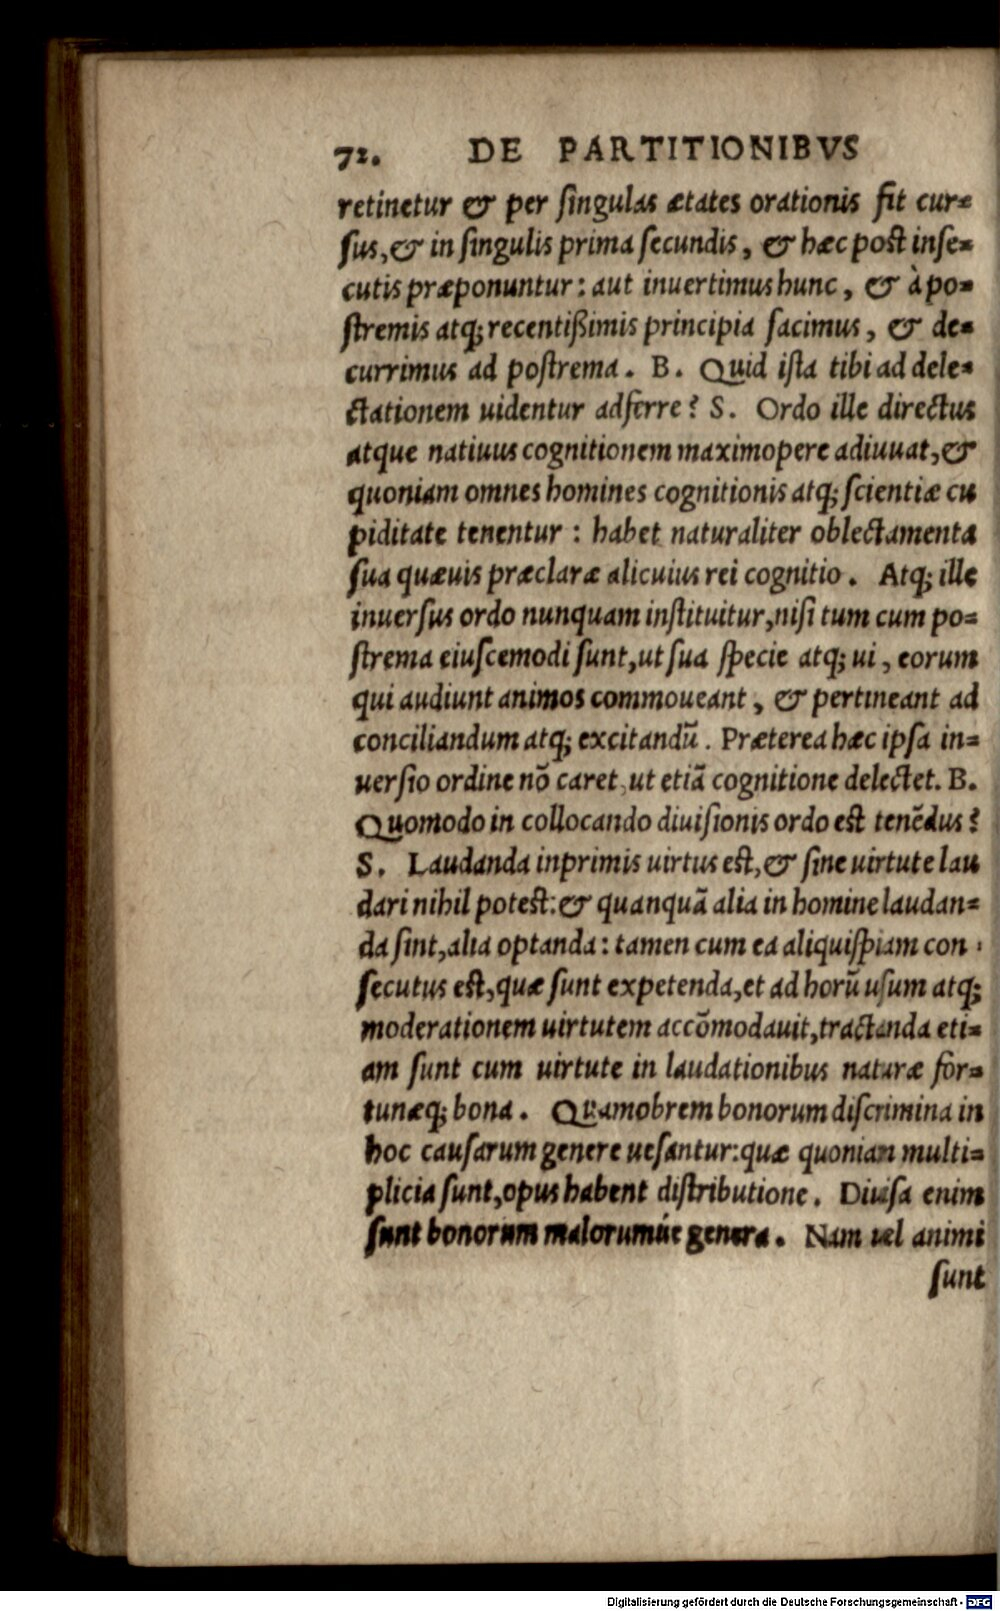 72. DE PARTITIONIBVS
retinetur & per singulas ætates orationis fit cur=
sus, & in singulis prima secundis, & hæc post inse=
cutis præponuntur: aut inuertimus hunc, & à po=
stremis atq; recentißimis principia facimus, & de=
currimus ad postrema. B. Quid ista tibi ad dele=
ctationem uidentur adferre? S. Ordo ille directus
atque natiuus cognitionem maximopere adiuuat, &
quoniam omnes homines cognitionis atq; scientiæ cu
piditate tenentur: habet naturaliter oblectamenta
sua quæuis præclaræ alicuius rei cognitio. Atq; ille
inuersus ordo nunquam instituitur, nisi tum cum po=
strema eiuscemodi sunt, ut sua specie atq; ui, eorum
qui audiunt animos commoueant, & pertineant ad
conciliandum atq; excitandū. Præterea hæc ipsa in=
uersio ordine nō caret, ut etiā cognitione delectet. B.
Quomodo in collocando diuisionis ordo est tenēdus?
S. Laudanda inprimis uirtus est, & sine uirtute lau
dari nihil potest: & quanquā alia in homine laudan=
da sint, alia optanda: tamen cum ea aliquispiam con
secutus est, quæ sunt expetenda, et ad horū usum atq;
moderationem uirtutem accōmodauit, tractanda eti=
am sunt cum uirtute in laudationibus naturæ for=
tunæq; bona. Quamobrem bonorum discrimina in
hoc causarum genere uesantur: quæ quoniam multi=
plicia sunt, opus habent distributione. Diuisa enim
sunt bonorum malorumúe genera. Nam uel animi
sunt
Digitalisierung gefördert durch die Deutsche Forschungsgemeinschaft - DFG